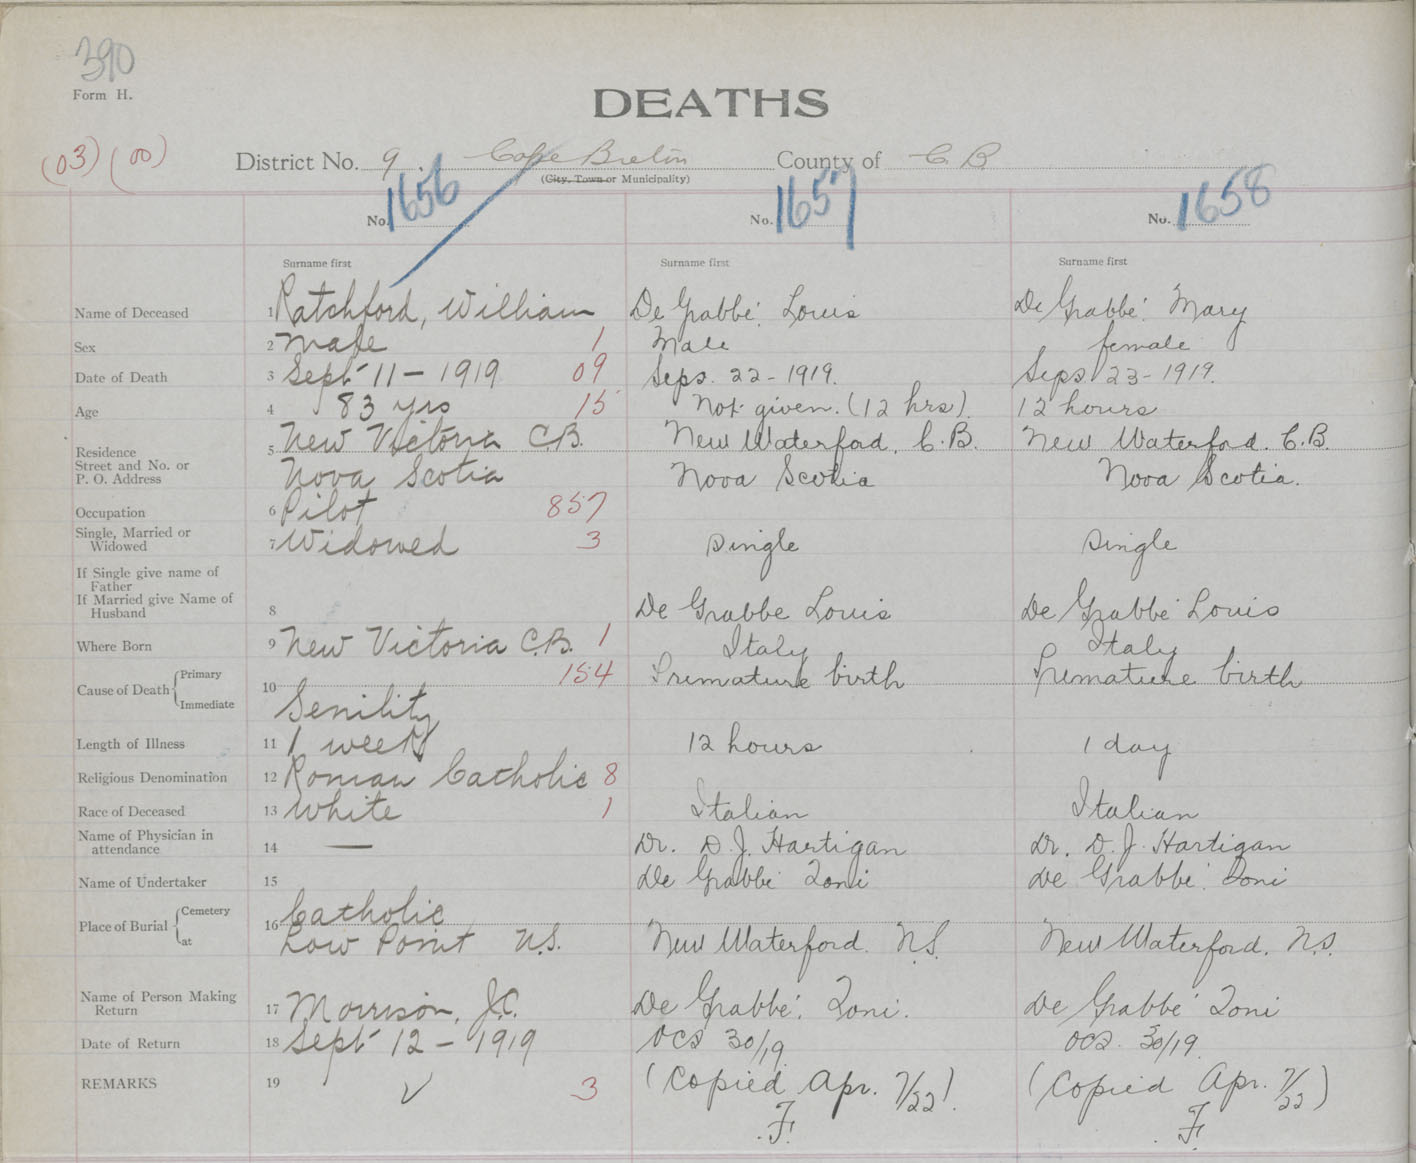 390
Form H.
DEATHS
(03) (00)
District No. 9. Cape Breton County of C B
(City, Town or Municipality)
No. 1656 No. 1657 No. 1658
Surname first Surname first Surname first
Name of Deceased 1 Ratchford, William De Grabbé. Louis De Grabbé. Mary
Sex 2 Male 1 Male female
Date of Death 3 Sept 11 - 1919 09 Sept. 22 - 1919. Sept 23 - 1919.
Age 4 83 yrs 15 Not given. (12 hrs). 12 hours
Residence 5 New Victoria C.B. New Waterford. C.B. New Waterford. C.B.
Street and No. or
P. O. Address Nova Scotia Nova Scotia Nova Scotia.
Occupation 6 Pilot 857
Single, Married or
Widowed 7 Widowed 3 Single Single
If Single give name of
Father
If Married give Name of
Husband 8 De Grabbe Louis De Grabbé Louis
Where Born 9 New Victoria C.B. 1 Italy Italy
Cause of Death Primary 10 154 Premature birth Premature birth
Immediate Senility
Length of Illness 11 1 week 12 hours 1 day
Religious Denomination 12 Roman Catholic 8
Race of Deceased 13 White 1 Italian Italian
Name of Physician in
attendance 14 — Dr. D. J. Hartigan Dr. D. J. Hartigan
Name of Undertaker 15 De Grabbé Toni De Grabbé. Toni
Place of Burial Cemetery 16 Catholic
at Low Point N.S. New Waterford. N.S. New Waterford. N.S.
Name of Person Making
Return 17 Morrison, J.C. De Grabbé. Toni. De Grabbé Toni
Date of Return 18 Sept 12 - 1919 Oct 30/19. Oct. 30/19.
REMARKS 19 ✓ 3 (Copied Apr. 7/22). (Copied Apr. 7/22)
F. F.